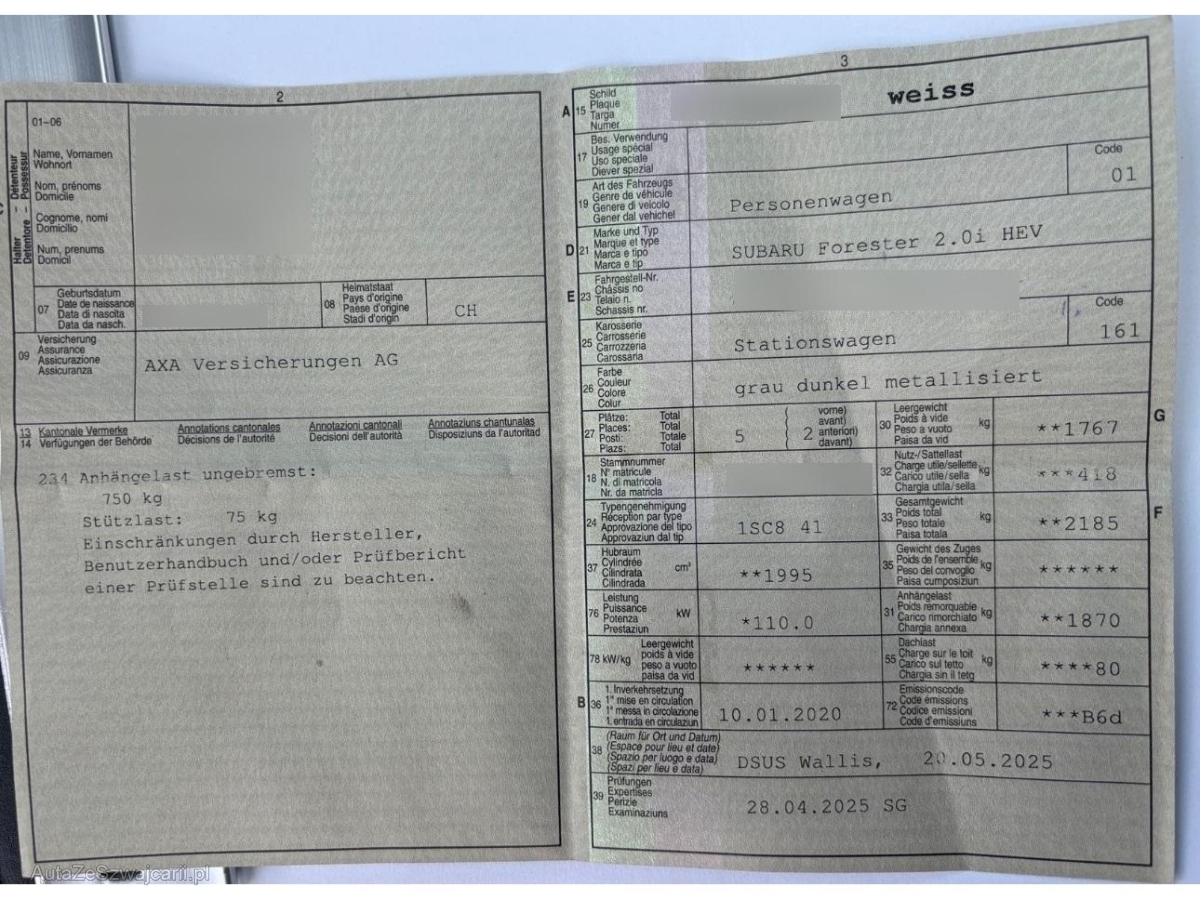 2
01-06
Halter - Détenteur
Detentore - Possessur
Name, Vornamen
Wohnort
Nom, prénoms
Domicile
Cognome, nomi
Domicilio
Num, prenums
Domicil
07
Geburtsdatum
Date de naissance
Data di nascita
Data da nasch.
08
Heimatstaat
Pays d'origine
Paese d'origine
Stadi d'origin
CH
09
Versicherung
Assurance
Assicurazione
Assicuranza
AXA Versicherungen AG
13
14
Kantonale Vermerke
Verfügungen der Behörde
Annotations cantonales
Décisions de l'autorité
Annotazioni cantonali
Decisioni dell'autorità
Annotaziuns chantunalas
Disposiziuns da l'autoritad
234 Anhängelast ungebremst:
750 kg
Stützlast: 75 kg
Einschränkungen durch Hersteller,
Benutzerhandbuch und/oder Prüfbericht
einer Prüfstelle sind zu beachten.
3
A
15
Schild
Plaque
Targa
Numer
weiss
17
Bes. Verwendung
Usage spécial
Uso speciale
Diever spezial
19
Art des Fahrzeugs
Genre de véhicule
Genere di veicolo
Gener dal vehichel
Personenwagen
Code
01
D
21
Marke und Typ
Marque et type
Marca e tipo
Marca e tip
SUBARU Forester 2.0i HEV
E
23
Fahrgestell-Nr.
Châssis no
Telaio n.
Schassis nr.
25
Karosserie
Carrosserie
Carrozzeria
Carossaria
Stationswagen
Code
161
26
Farbe
Couleur
Colore
Colur
grau dunkel metallisiert
27
Plätze: Total
Places: Total
Posti: Totale
Plazs: Total
5
2
vorne)
avant)
anteriori)
davant)
30
Leergewicht
Poids à vide
Peso a vuoto
Paisa da vid
kg
**1767
G
18
Stammnummer
N° matricule
N. di matricola
Nr. da matricla
32
Nutz-/Sattellast
Charge utile/sellette
Carico utile/sella
Chargia utila/sella
kg
***418
24
Typengenehmigung
Réception par type
Approvazione del tipo
Approvaziun dal tip
1SC8 41
33
Gesamtgewicht
Poids total
Peso totale
Paisa totala
kg
**2185
F
37
Hubraum
Cylindrée
Cilindrata
Cilindrada
cm³
**1995
35
Gewicht des Zuges
Poids de l'ensemble
Peso del convoglio
Paisa cumposiziun
kg
******
76
Leistung
Puissance
Potenza
Prestaziun
kW
*110.0
31
Anhängelast
Poids remorquable
Carico rimorchiato
Chargia annexa
kg
**1870
78 kW/kg
Leergewicht
poids à vide
peso a vuoto
paisa da vid
******
55
Dachlast
Charge sur le toit
Carico sul tetto
Chargia sin il tetg
kg
****80
B
36
1. Inverkehrsetzung
1re mise en circulation
1a messa in circolazione
1. entrada en circulaziun
10.01.2020
72
Emissionscode
Code émissions
Codice emissioni
Code d'emissiuns
***B6d
38
(Raum für Ort und Datum)
(Espace pour lieu et date)
(Spazio per luogo e data)
(Spazi per lieu e data)
DSUS Wallis, 20.05.2025
39
Prüfungen
Expertises
Perizie
Examinaziuns
28.04.2025 SG
AutaZeSzwajcarii.pl